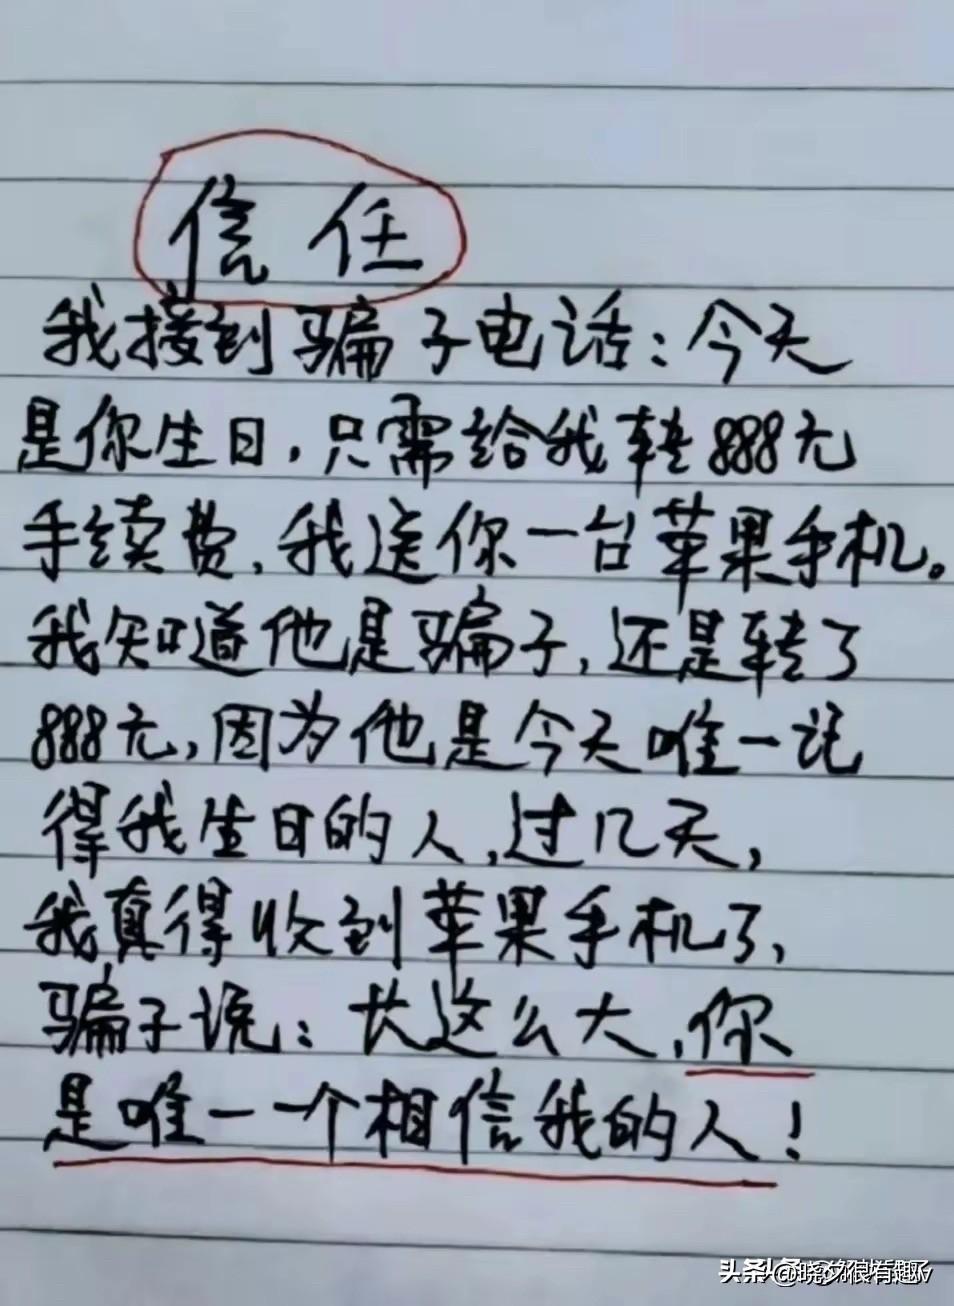 信任
我接到骗子电话：今天
是你生日，只需给我转888元
手续费，我送你一台苹果手机。
我知道他是骗子，还是转了
888元，因为他是今天唯一记
得我生日的人，过几天，
我真得收到苹果手机了，
骗子说：长这么大，你
是唯一一个相信我的人！
头条 @晓
很有趣